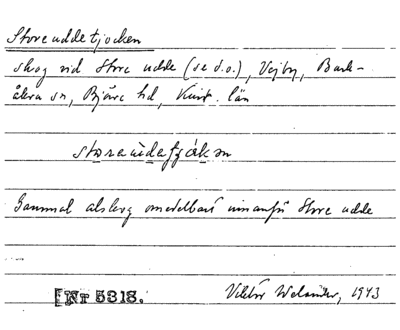 Storeuddetjocken
skog vid Store udde (se d.o.), Vejby, Bark-
åkra sn, Bjäre hd, Krist. län
storeudafjåkən
Gammal alskog omedelbart innanför Store udde
[Nr 5318.
Viktor Welander, 1943